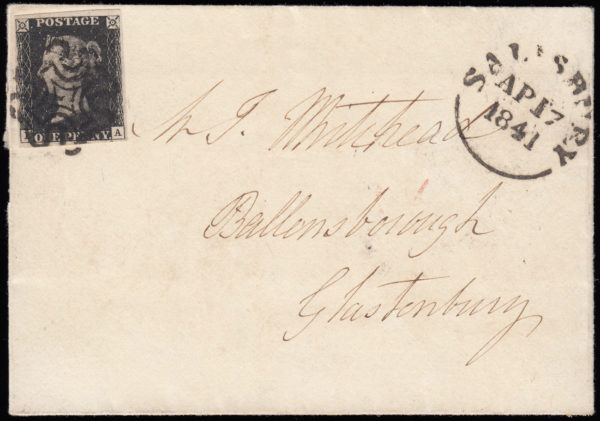 POSTAGE
ONE PENNY
A
SALISBURY
AP 17
1841
Mr J. Whitehead
Ballensborough
Glastonbury